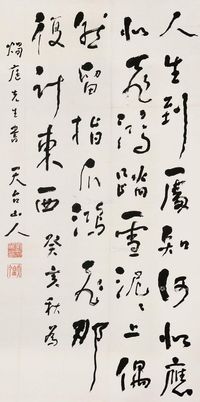 人生到處知何似應
似飛鴻踏雪泥々上偶
然留指爪鴻飛那
復計東西 癸亥秋為
庭先生書 天台山人